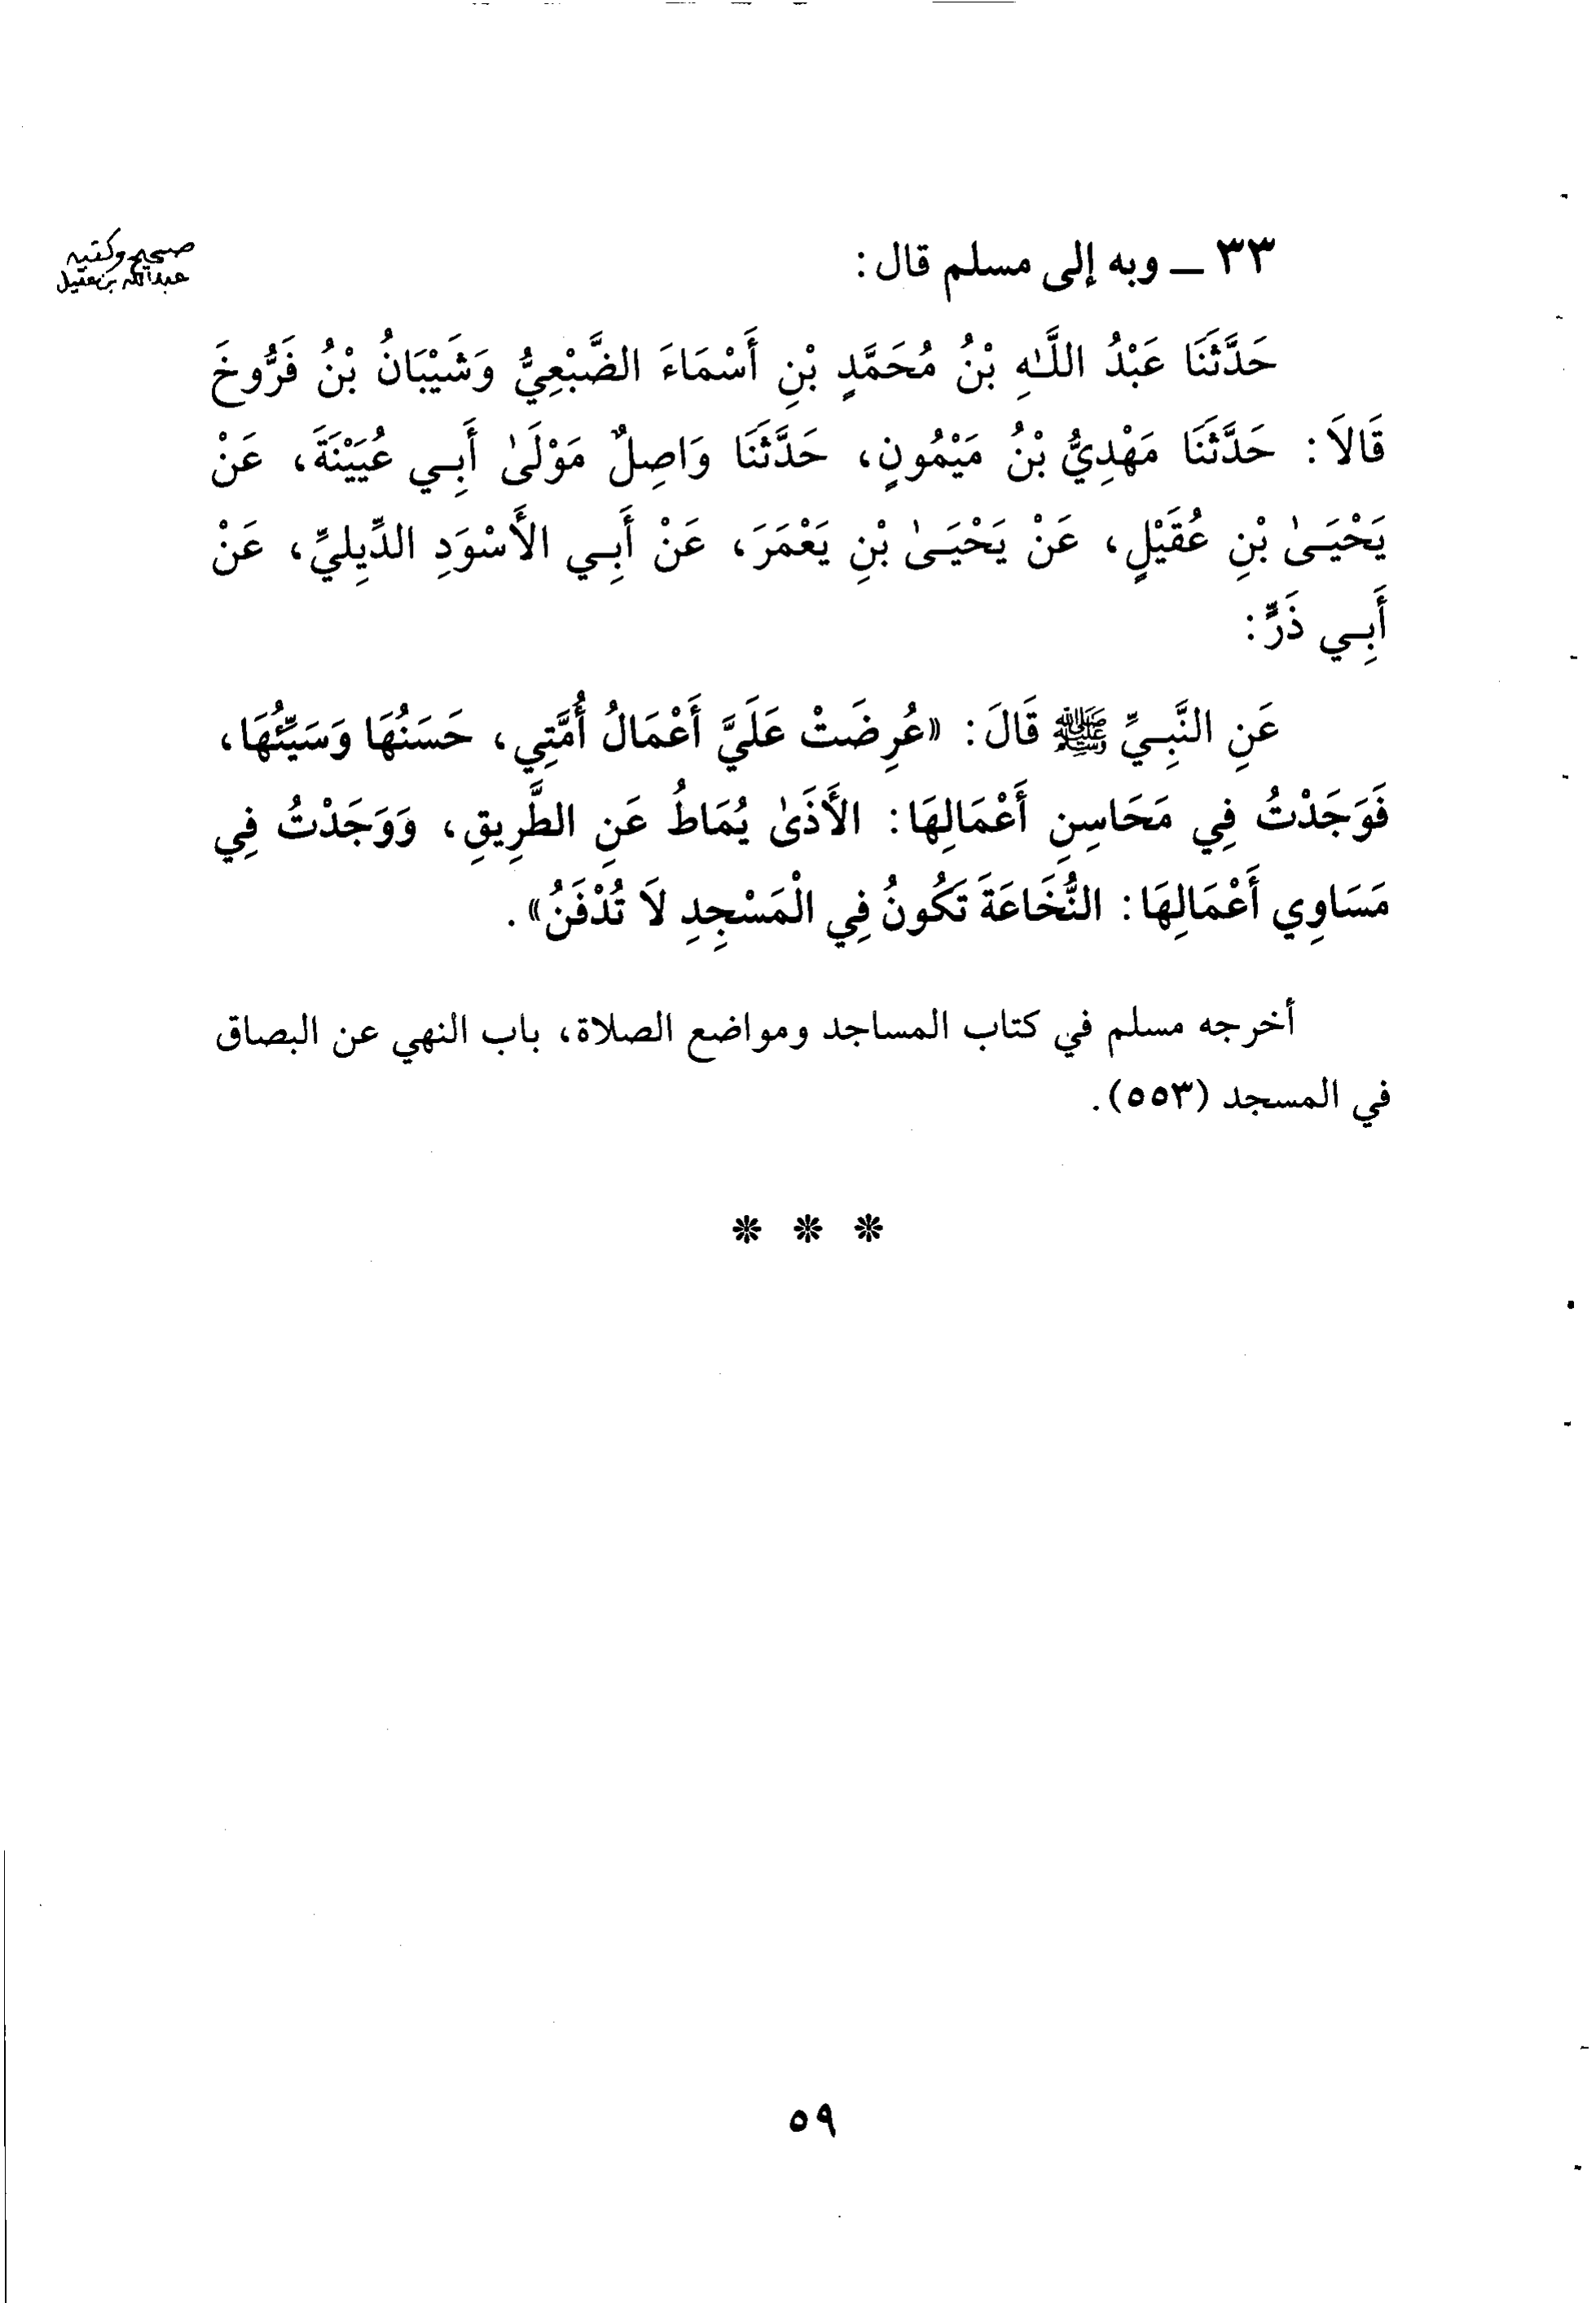 ٣٣ ــ وبه إلى مسلم قال:
صحيح وكتبه
عبدالله بن عقيل
حَدَّثَنَا عَبْدُ اللَّـٰهِ بْنُ مُحَمَّدٍ بْنِ أَسْمَاءَ الضَّبْعِيُّ وَشَيْبَانُ بْنُ فَرُّوخَ
قَالاَ: حَدَّثَنَا مَهْدِيُّ بْنُ مَيْمُونٍ، حَدَّثَنَا وَاصِلٌ مَوْلَىٰ أَبِـي عُيَيْنَةَ، عَنْ
يَحْيَـىٰ بْنِ عُقَيْلٍ، عَنْ يَحْيَـىٰ بْنِ يَعْمَرَ، عَنْ أَبِـي الأَسْوَدِ الدِّيِليِّ، عَنْ
أَبِـي ذَرٍّ:
عَنِ النَّبِـيِّ ﷺ قَالَ: «عُرِضَتْ عَلَيَّ أَعْمَالُ أُمَّتِي، حَسَنُهَا وَسَيِّئُهَا،
فَوَجَدْتُ فِي مَحَاسِنِ أَعْمَالِهَا: الأَذَىٰ يُمَاطُ عَنِ الطَّرِيقِ، وَوَجَدْتُ فِي
مَسَاوِي أَعْمَالِهَا: النُّخَاعَةَ تَكُونُ فِي الْمَسْجِدِ لاَ تُدْفَنُ».
أخرجه مسلم في كتاب المساجد ومواضع الصلاة، باب النهي عن البصاق
في المسجد (٥٥٣).
* * *
٥٩